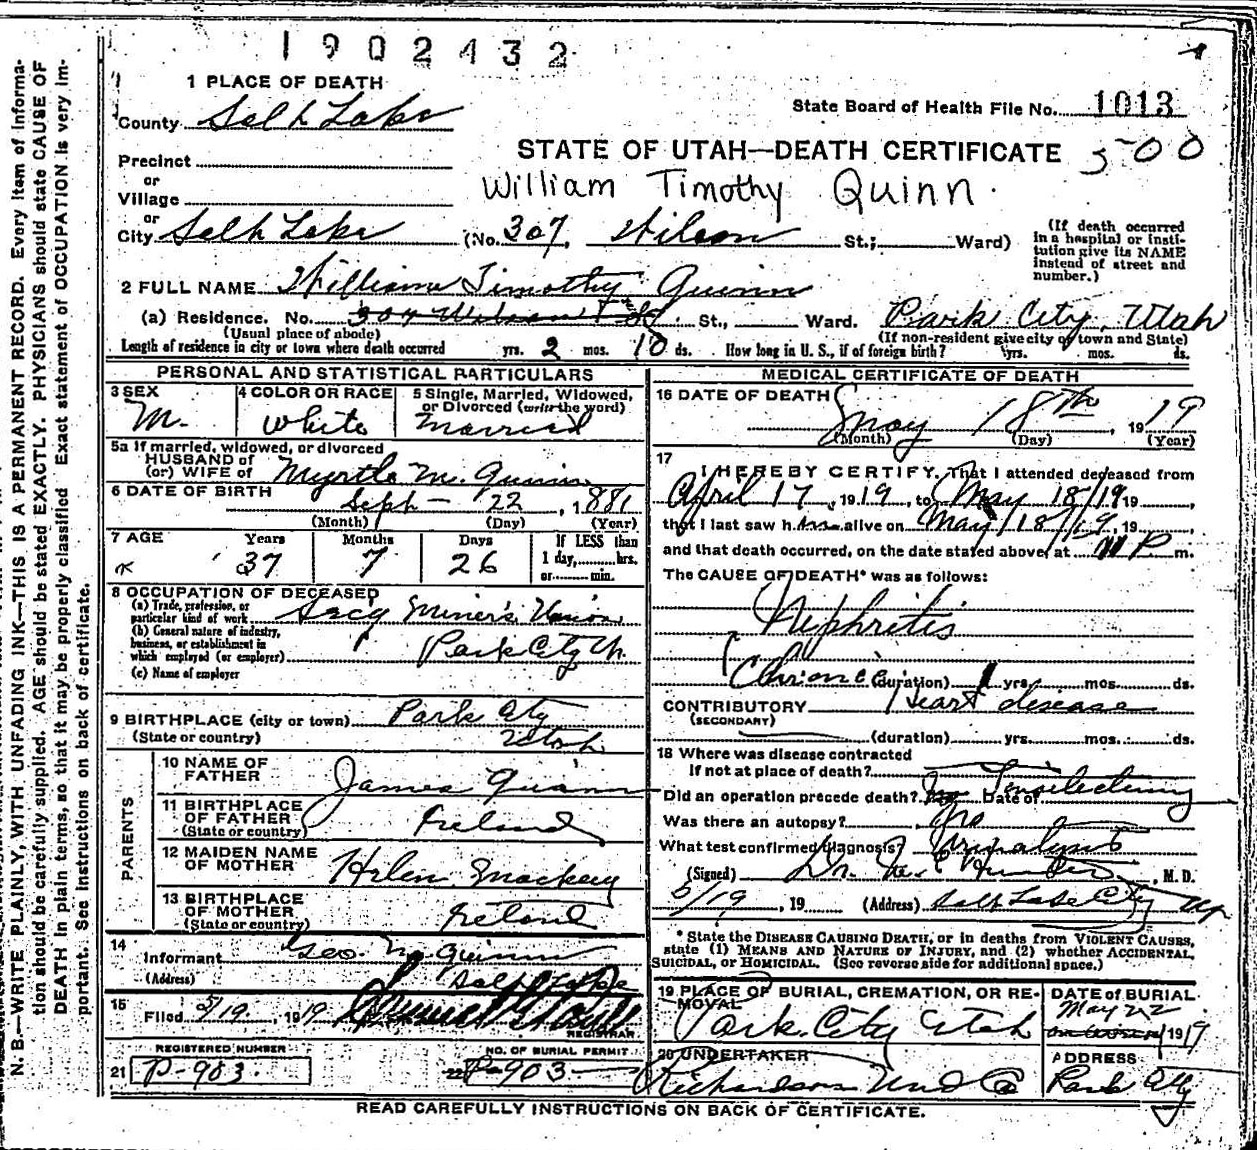 1902432
1 PLACE OF DEATH
County Salt Lake
State Board of Health File No. 1013
Precinct
or
Village
or
City Salt Lake
STATE OF UTAH—DEATH CERTIFICATE 500
William Timothy Quinn.
(No. 307, Wilson St.; Ward)
(If death occurred
in a hospital or insti-
tution give its NAME
instead of street and
number.)
2 FULL NAME William Timothy Quinn
(a) Residence. No. 307 Wilson St., Ward. Park City, Utah
(Usual place of abode) (If non-resident give city or town and State)
Length of residence in city or town where death occurred yrs. 2 mos. 10 ds. How long in U. S., if of foreign birth? yrs. mos. ds.
PERSONAL AND STATISTICAL PARTICULARS
3 SEX
M.
4 COLOR OR RACE
White
5 Single, Married, Widowed,
or Divorced (write the word)
Married
5a If married, widowed, or divorced
HUSBAND of
(or) WIFE of Myrtle M. Quinn
6 DATE OF BIRTH Sept - 22, 1881
(Month) (Day) (Year)
7 AGE Years Months Days If LESS than
1 day, hrs.
or min.
37 7 26
8 OCCUPATION OF DECEASED
(a) Trade, profession, or
particular kind of work Secy Miner's Union
(b) General nature of industry,
business, or establishment in
which employed (or employer) Park City U.
(c) Name of employer
9 BIRTHPLACE (city or town) Park City
(State or country) Utah
PARENTS
10 NAME OF
FATHER James Quinn
11 BIRTHPLACE
OF FATHER
(State or country) Ireland
12 MAIDEN NAME
OF MOTHER Helen Mackey
13 BIRTHPLACE
OF MOTHER
(State or country) Ireland
14
Informant Geo. M Quinn
(Address) Salt Lake
15
Filed 5/19, 1919
REGISTRAR
REGISTERED NUMBER
21 P-903.
NO. OF BURIAL PERMIT
22 P-903
MEDICAL CERTIFICATE OF DEATH
16 DATE OF DEATH
May 18th, 1919
(Month) (Day) (Year)
17
I HEREBY CERTIFY, That I attended deceased from
April 17, 1919, to May 18/19 19
that I last saw h alive on May/18/19, 19
and that death occurred, on the date stated above, at 11 P m.
The CAUSE OF DEATH* was as follows:
Nephritis
Chronic (duration) 1 yrs. mos. ds.
CONTRIBUTORY Heart disease
(SECONDARY)
(duration) yrs. mos. ds.
18 Where was disease contracted
if not at place of death?
Did an operation precede death? Date of
Was there an autopsy? No
What test confirmed diagnosis? Urinalysis
(Signed) Dr. , M. D.
5/19, 19 (Address) Salt Lake City
* State the DISEASE CAUSING DEATH, or in deaths from VIOLENT CAUSES,
state (1) MEANS AND NATURE OF INJURY, and (2) whether ACCIDENTAL,
SUICIDAL, or HOMICIDAL. (See reverse side for additional space.)
19 PLACE OF BURIAL, CREMATION, OR RE-
MOVAL
Park City Utah
DATE OF BURIAL
May 22
1919
20 UNDERTAKER
Richardson Und Co
ADDRESS
Park City
READ CAREFULLY INSTRUCTIONS ON BACK OF CERTIFICATE.
N. B.—WRITE PLAINLY, WITH UNFADING INK—THIS IS A PERMANENT RECORD. Every item of informa-
tion should be carefully supplied. AGE should be stated EXACTLY. PHYSICIANS should state CAUSE OF
DEATH in plain terms, so that it may be properly classified. Exact statement of OCCUPATION is very im-
portant. See instructions on back of certificate.